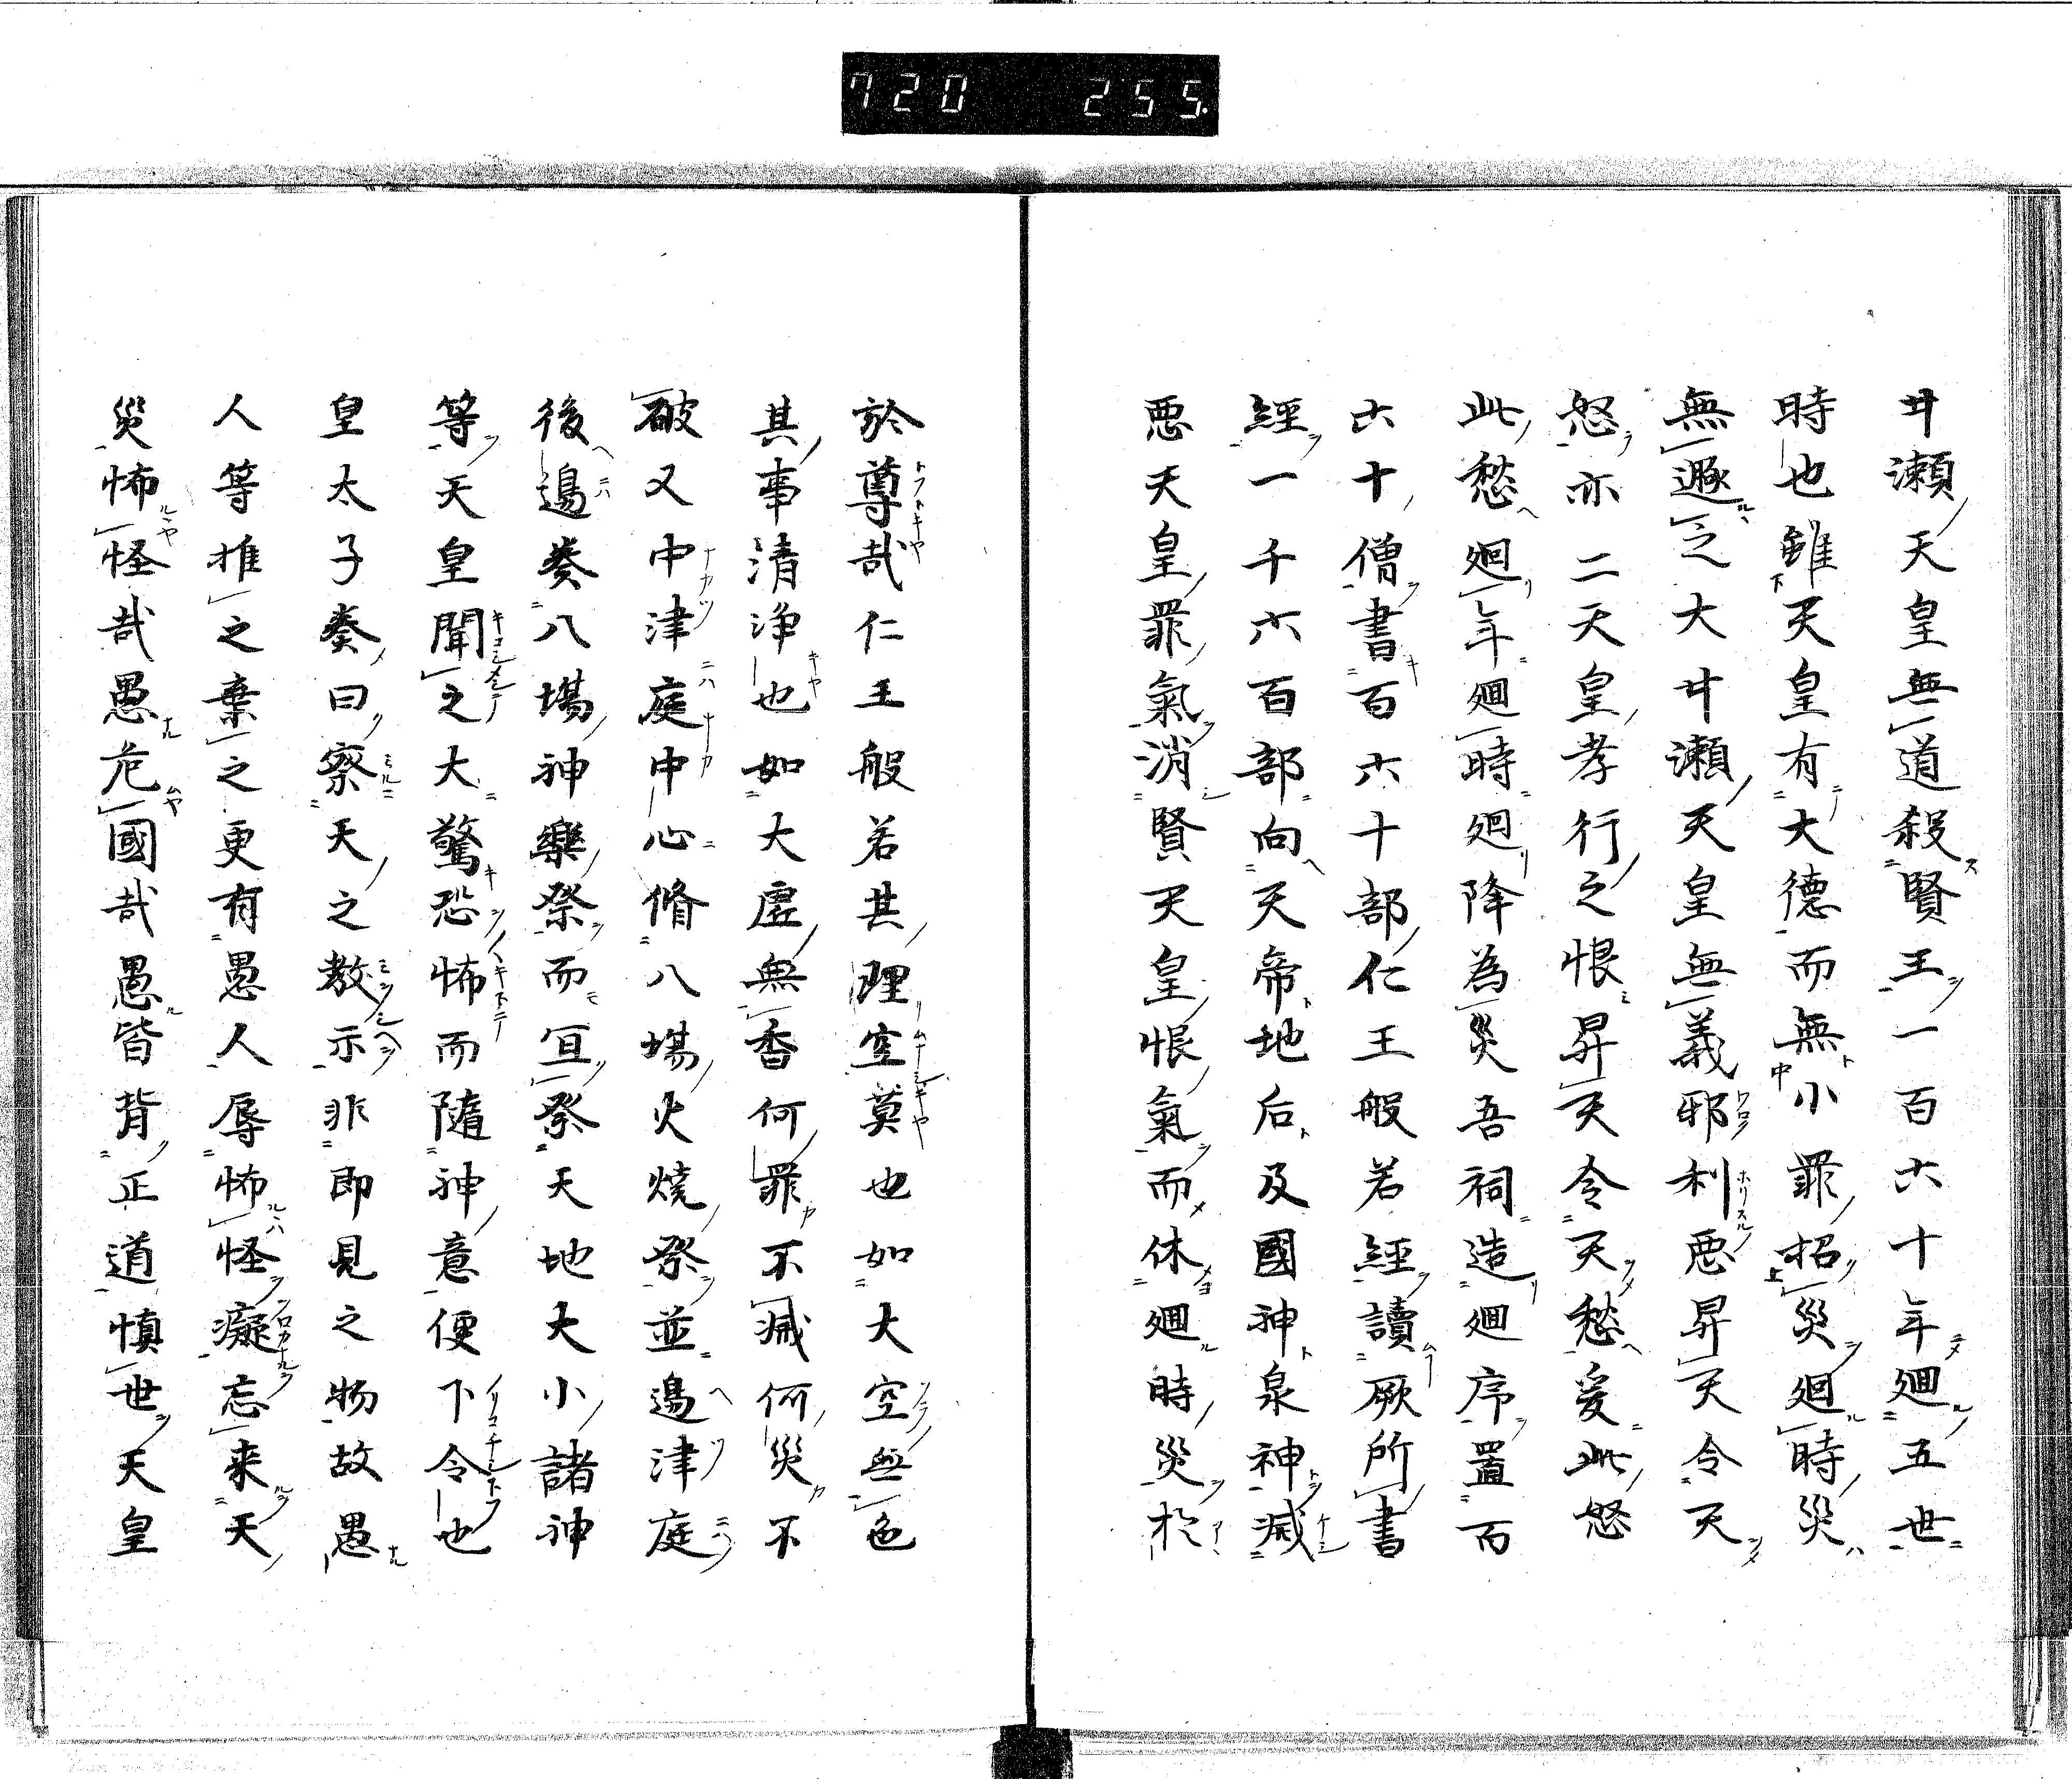 720 255.
廾瀬天皇無道殺賢王一百六十年廻五世
時也雖天皇有大德而無小罪招災廻時災
無遯之大廾瀬天皇無義邪利惡昇天令天
怒亦二天皇孝行之恨昇天令天愁爰此怒
此愁廻年廻時廻降為災吾祠造廻序置而
六十僧書百六十部仁王般若經讀厥所書
經一千六百部向天帝地后及國神泉神滅
惡天皇罪氣消賢天皇恨氣而休廻時災於
於尊哉仁王般若其理空莫也如大空無色
其事清浄也如大虛無香何罪不滅何災不
破又中津庭中心脩八場火燒祭並邊津庭
後邊奏八場神樂祭而宜祭天地大小諸神
等天皇聞之大驚恐怖而隨神意便下令也
皇太子奏曰察天之教示非即見之物故愚
人等推之棄之更有愚人辱怖怪癡忘来天
災怖怪哉愚危國哉愚皆背正道慎世天皇